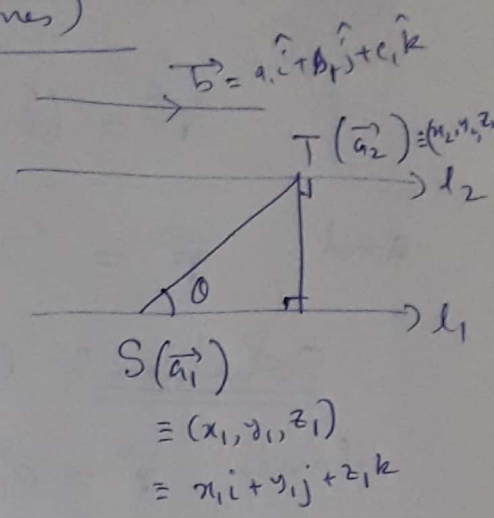 nes)
b⃗ = a₁î + b₁ĵ + c₁k̂
T (a⃗₂) ≡ (x₂, y₂, z
l₂
θ
l₁
S(a⃗₁)
≡ (x₁, y₁, z₁)
≡ x₁i + y₁j + z₁k